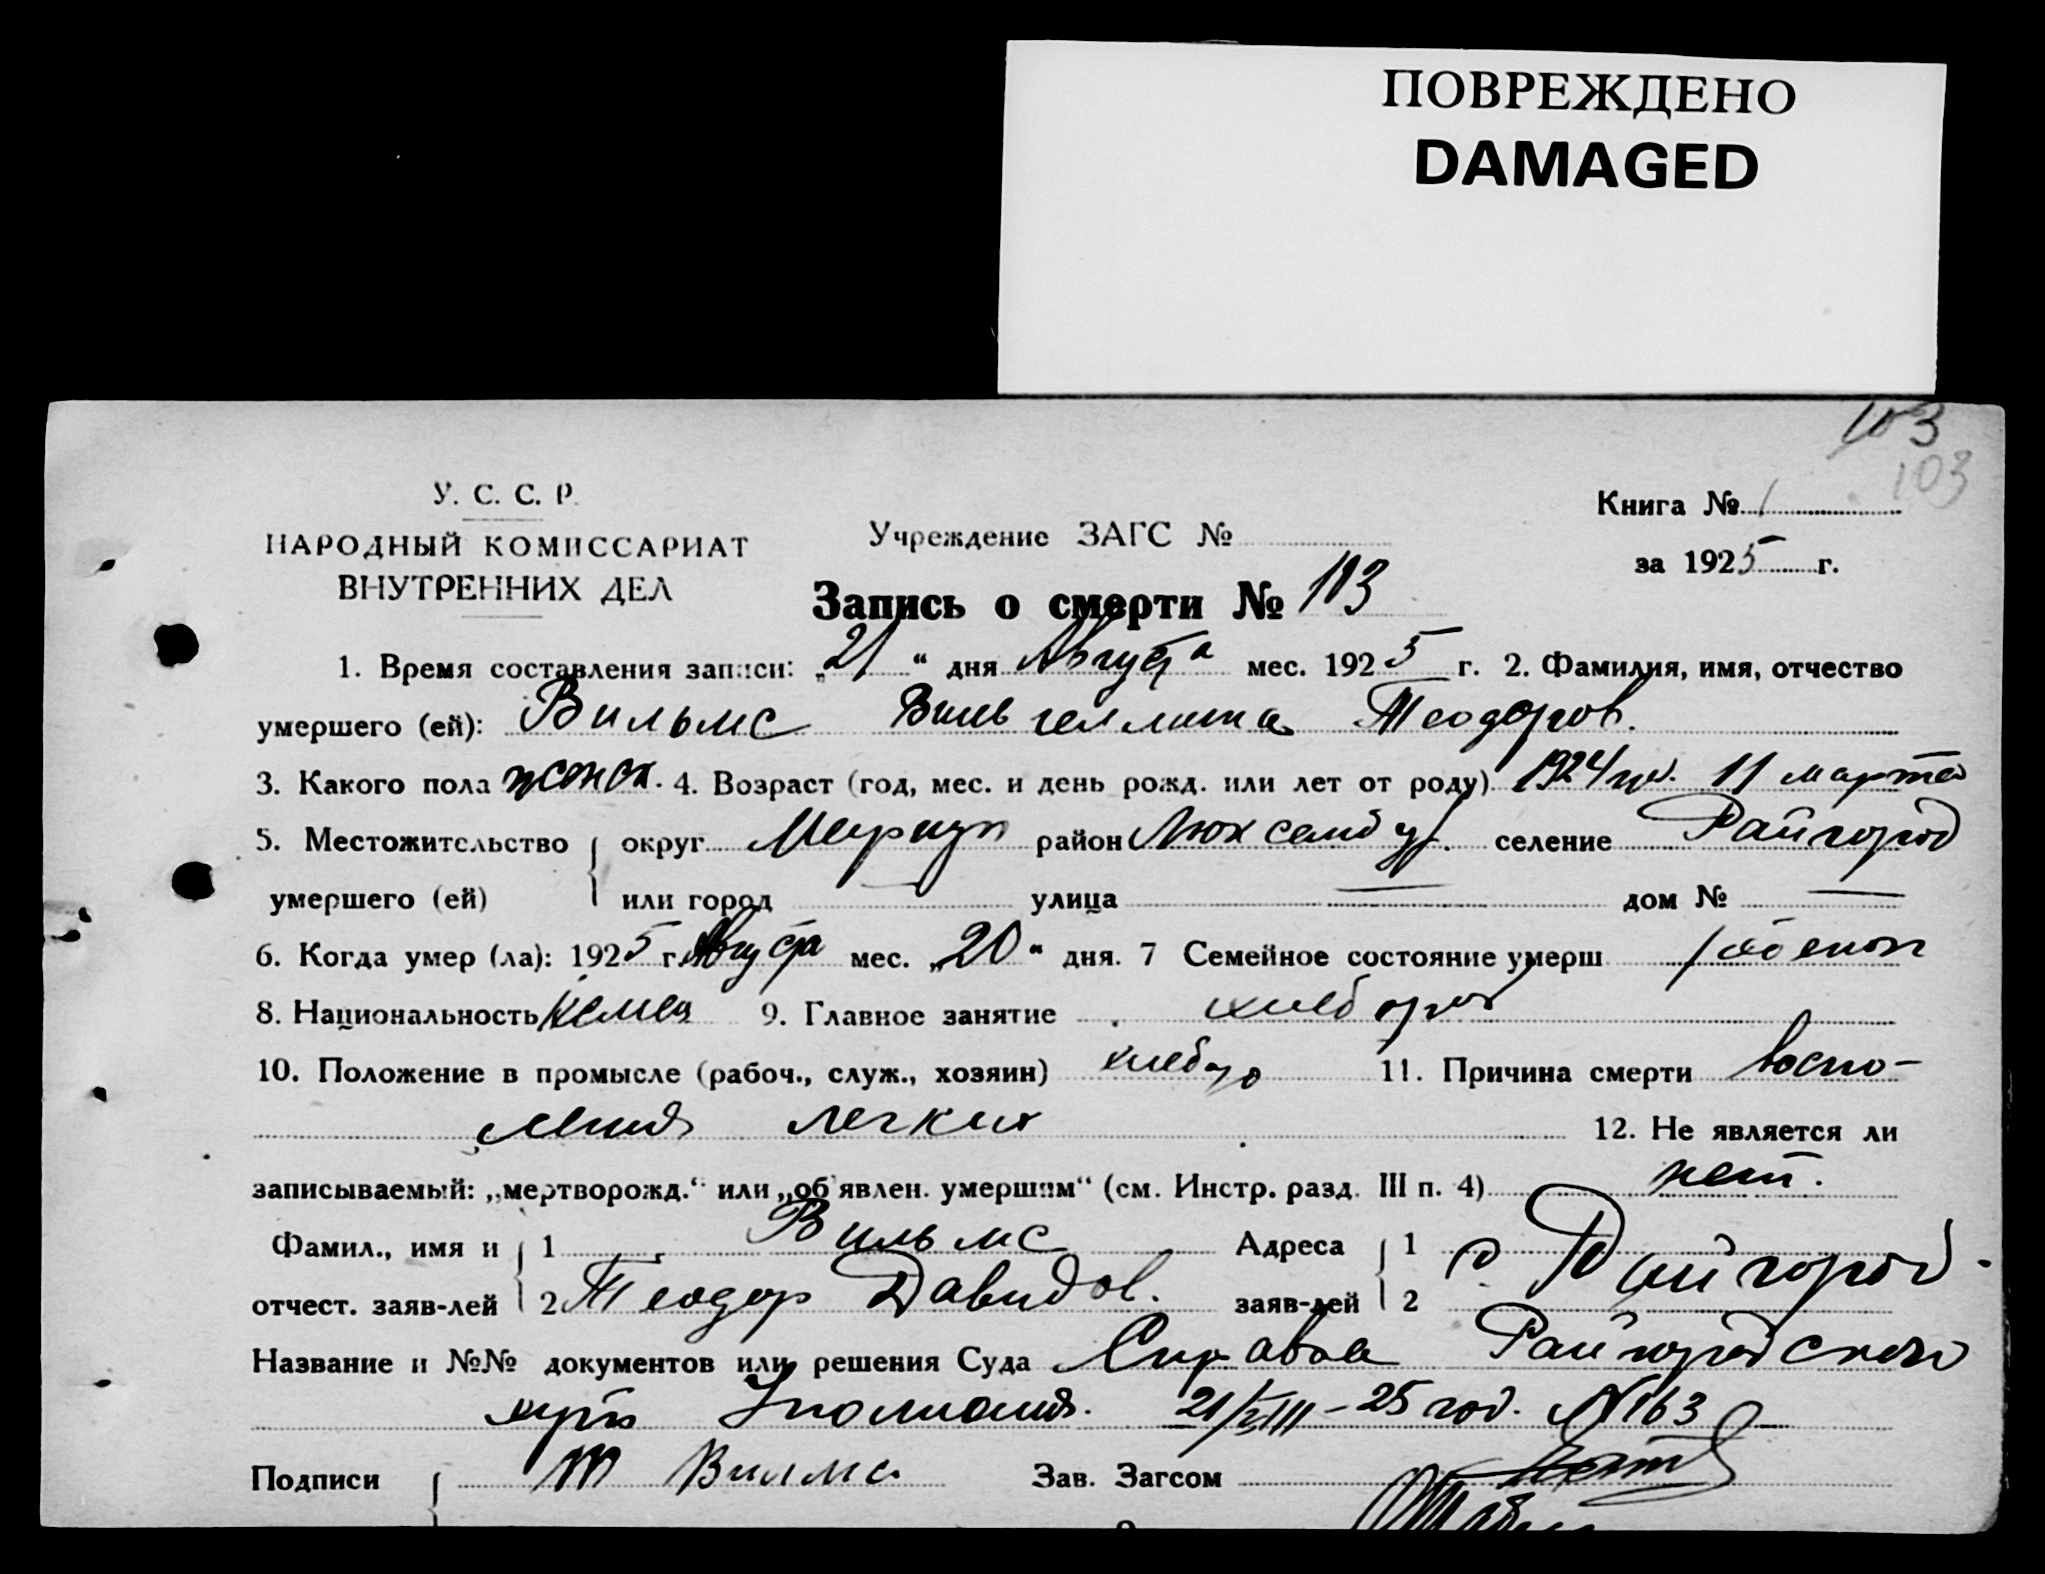 ПОВРЕЖДЕНО
DAMAGED
103
103
У. С. С. Р.
НАРОДНЫЙ КОМИССАРИАТ
ВНУТРЕННИХ ДЕЛ
Учреждение ЗАГС №
Книга № 1
за 1925 г.
Запись о смерти № 103
1. Время составления записи: „21“ дня Августа мес. 1925 г. 2. Фамилия, имя, отчество
умершего (ей): Вильмс Вильгельмина Теодоров.
3. Какого пола женск. 4. Возраст (год, мес. и день рожд. или лет от роду) 1924 год. 11 марта
5. Местожительство округ район Люксембург. селение Райгород
умершего (ей) или город — улица — дом № —
6. Когда умер (ла): 1925 г. Августа мес. „20“ дня. 7 Семейное состояние умерш ребенок
8. Национальность немец 9. Главное занятие хлебороб
10. Положение в промысле (рабоч., служ., хозяин) хлебор 11. Причина смерти воспо-
ления легких 12. Не является ли
записываемый: „мертворожд.“ или „об'явлен. умершим“ (см. Инстр. разд. III п. 4) нет.
Фамил., имя и 1 Вильмс Адреса 1 с. Райгород.
отчест. заяв-лей 2 Теодор Давидов. заяв-лей 2
Название и №№ документов или решения Суда Справка Райгородского
21/VIII-25 год. N163
Подписи Т Вилмс. Зав. Загсом